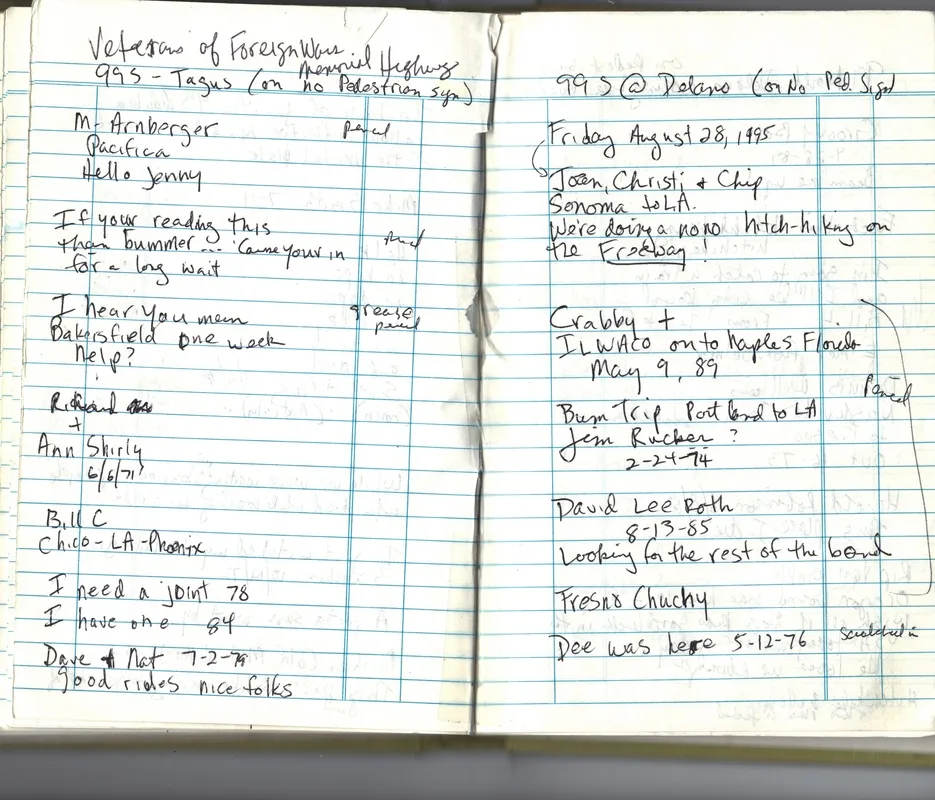 Veterans of Foreign Wars
Memorial Highway
99 S - Tagus (on no Pedestrian sign)
M. Arnberger pencil
Pacifica
Hello Jenny
If your reading this
than bummer ... 'cause your in pencil
for a long wait
I hear you man grease
pencil
Bakersfield one week
help?
Richard
+
Ann Shirly
6/6/71
Bill C
Chico-LA-Phoenix
I need a joint 78
I have one 84
Dave + Nat 7-2-79
good rides nice folks
99 S @ Delano (on No Ped. Sign)
Friday August 28, 1995
Joan, Christi + Chip
Sonoma to LA.
We're doing a nono hitch-hiking on
the Freeway!
Crabby +
ILWACO on to Naples Florida
May 9, 89
Pencil
Bum Trip Portland to LA
Jim Rucker ?
2-24-74
David Lee Roth
8-13-85
Looking for the rest of the band
Fresno Chuchy
Dee was here 5-12-76 scratched in